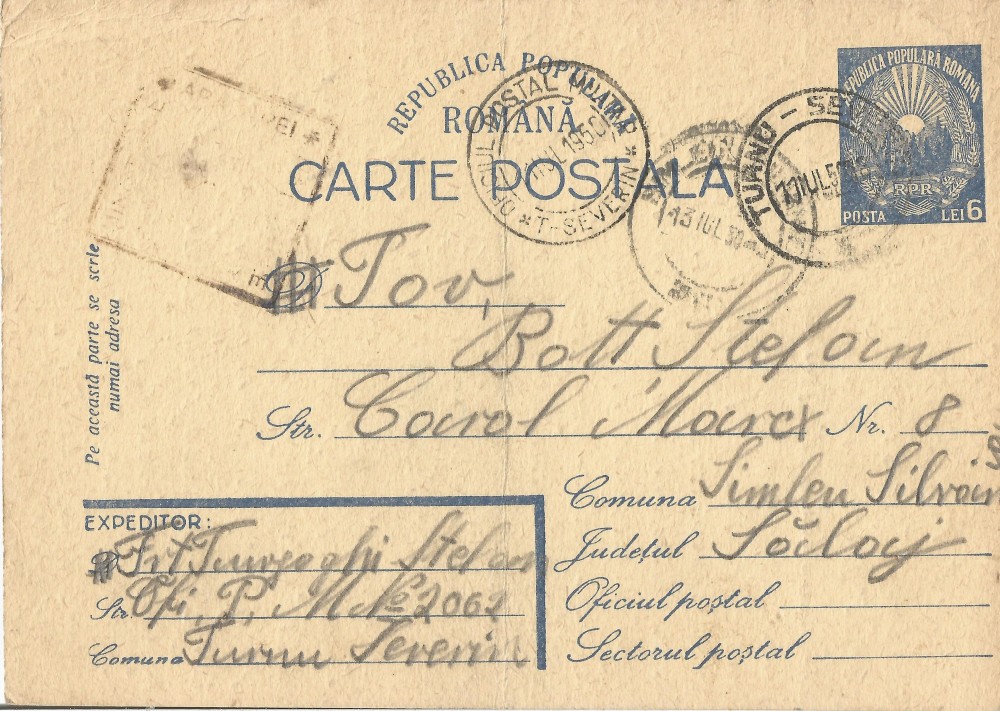 REPUBLICA POPULARĂ
ROMÂNĂ
CARTE POSTALA
REPUBLICA POPULARĂ ROMÂNĂ
RPR
POSTA LEI 6
OFICIUL POȘTAL
IUL. 1950
* T-SEVERIN *
13 IUL 50
TURNU - SEV
IUL 50
Pe această parte se scrie
numai adresa
Tov,
Bott Stefan
Str. Carol Marcx Nr. 8
Comuna Simleu Silvan
Județul Sălaj
Oficiul poștal
Sectorul poștal
EXPEDITOR:
Stefan
Str. Ofi. P. M No 2062
Comuna Turnu Severin